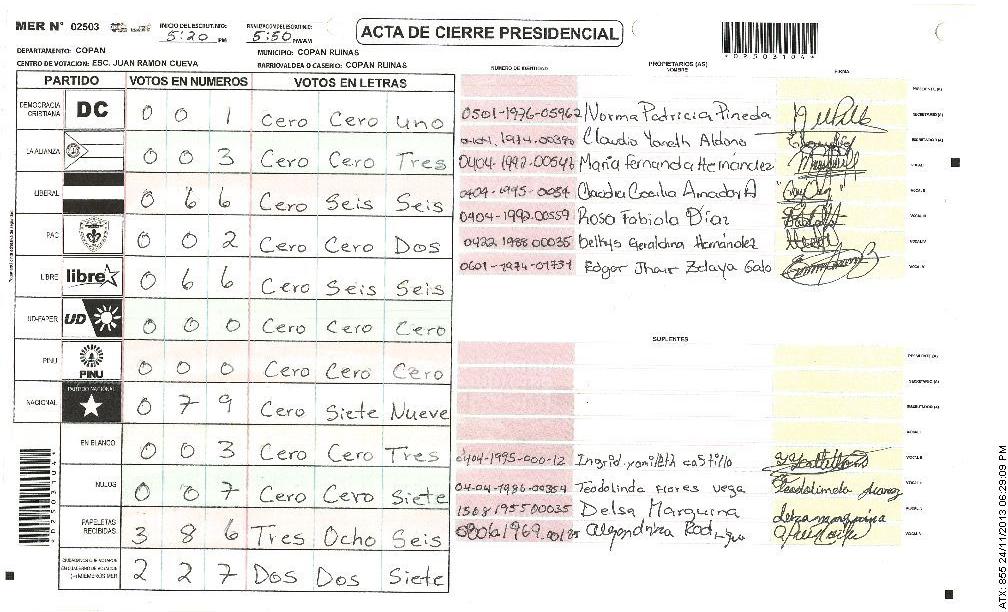 MER N° 02503 INICIO DEL ESCRUTINIO: 5:20 PM FINALIZACION DEL ESCRUTINIO: 5:50 PM/AM ACTA DE CIERRE PRESIDENCIAL
*02503104*
DEPARTAMENTO: COPAN MUNICIPIO: COPAN RUINAS
CENTRO DE VOTACION: ESC. JUAN RAMON CUEVA BARRIO/ALDEA O CASERIO: COPAN RUINAS
PARTIDO VOTOS EN NUMEROS VOTOS EN LETRAS
DEMOCRACIA CRISTIANA DC 0 0 1 Cero Cero uno
LA ALIANZA 0 0 3 Cero Cero Tres
LIBERAL 0 6 6 Cero Seis Seis
PAC 0 0 2 Cero Cero Dos
LIBRE libre 0 6 6 Cero Seis Seis
UD-FAPER UD 0 0 0 Cero Cero Cero
PINU PINU 0 0 0 Cero Cero Cero
NACIONAL PARTIDO NACIONAL 0 7 9 Cero Siete Nueve
EN BLANCO 0 0 3 Cero Cero Tres
NULOS 0 0 7 Cero Cero Siete
PAPELETAS RECIBIDAS 3 8 6 Tres Ocho Seis
2 2 7 Dos Dos Siete
*02503104*
NUMERO DE IDENTIDAD PROPIETARIOS (AS) NOMBRE FIRMA
PRESIDENTE (A)
0501-1976-05962 Norma Patricia Pineda SECRETARIO (A)
Claudia Yaneth Aldana
0404-1992-00546 Maria fernanda Hernández VOCAL I
0404-1995-0054 Claudia Cecilia Amador A VOCAL II
0404-1992-00559 Rosa Fabiola Díaz VOCAL III
0422 1988 00035 belkys Geraldina Hernández VOCAL IV
0601-1974-01731 Edgar Jhair Zelaya Galo VOCAL V
SUPLENTES
PRESIDENTE (A)
SECRETARIO (A)
ESCRUTADOR (A)
VOCAL I
0404-1995-000-12 Ingrid yamileth castillo VOCAL II
04-04-1986-00354 Teodolinda Flores Vega
1568 1955 00035 Delsa Marquina
Alejandrina
ATX: 855 24/11/2013 06:29:09 PM